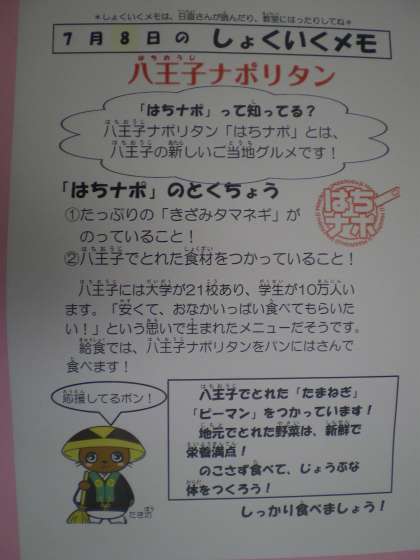 ＊しょくいくメモは、日直さんが読んだり、教室にはったりしてね＊
７月８日の しょくいくメモ
はちおうじ
八王子ナポリタン
「はちナポ」って知ってる？
八王子ナポリタン「はちナポ」とは、
八王子の新しいご当地グルメです！
「はちナポ」のとくちょう
①たっぷりの「きざみタマネギ」が
のっていること！
②八王子でとれた食材をつかっていること！
はちナポ
八王子には大学が21校あり、学生が10万人い
ます。「安くて、おなかいっぱい食べてもらいた
い！」という思いで生まれたメニューだそうです。
給食では、八王子ナポリタンをパンにはさんで
食べます！
応援してるポン！
八王子でとれた「たまねぎ」
「ピーマン」をつかっています！
地元でとれた野菜は、新鮮で
栄養満点！
のこさず食べて、じょうぶな
体をつくろう！
しっかり食べましょう！